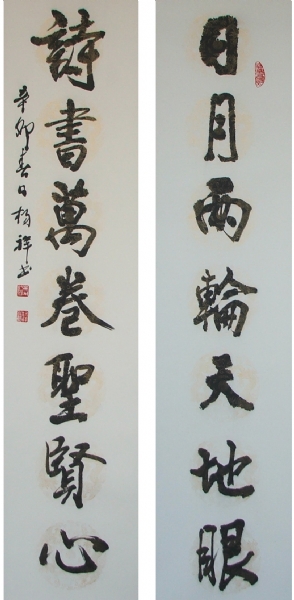 日月兩輪天地眼
詩書萬卷聖賢心
辛卯春日楊祥書